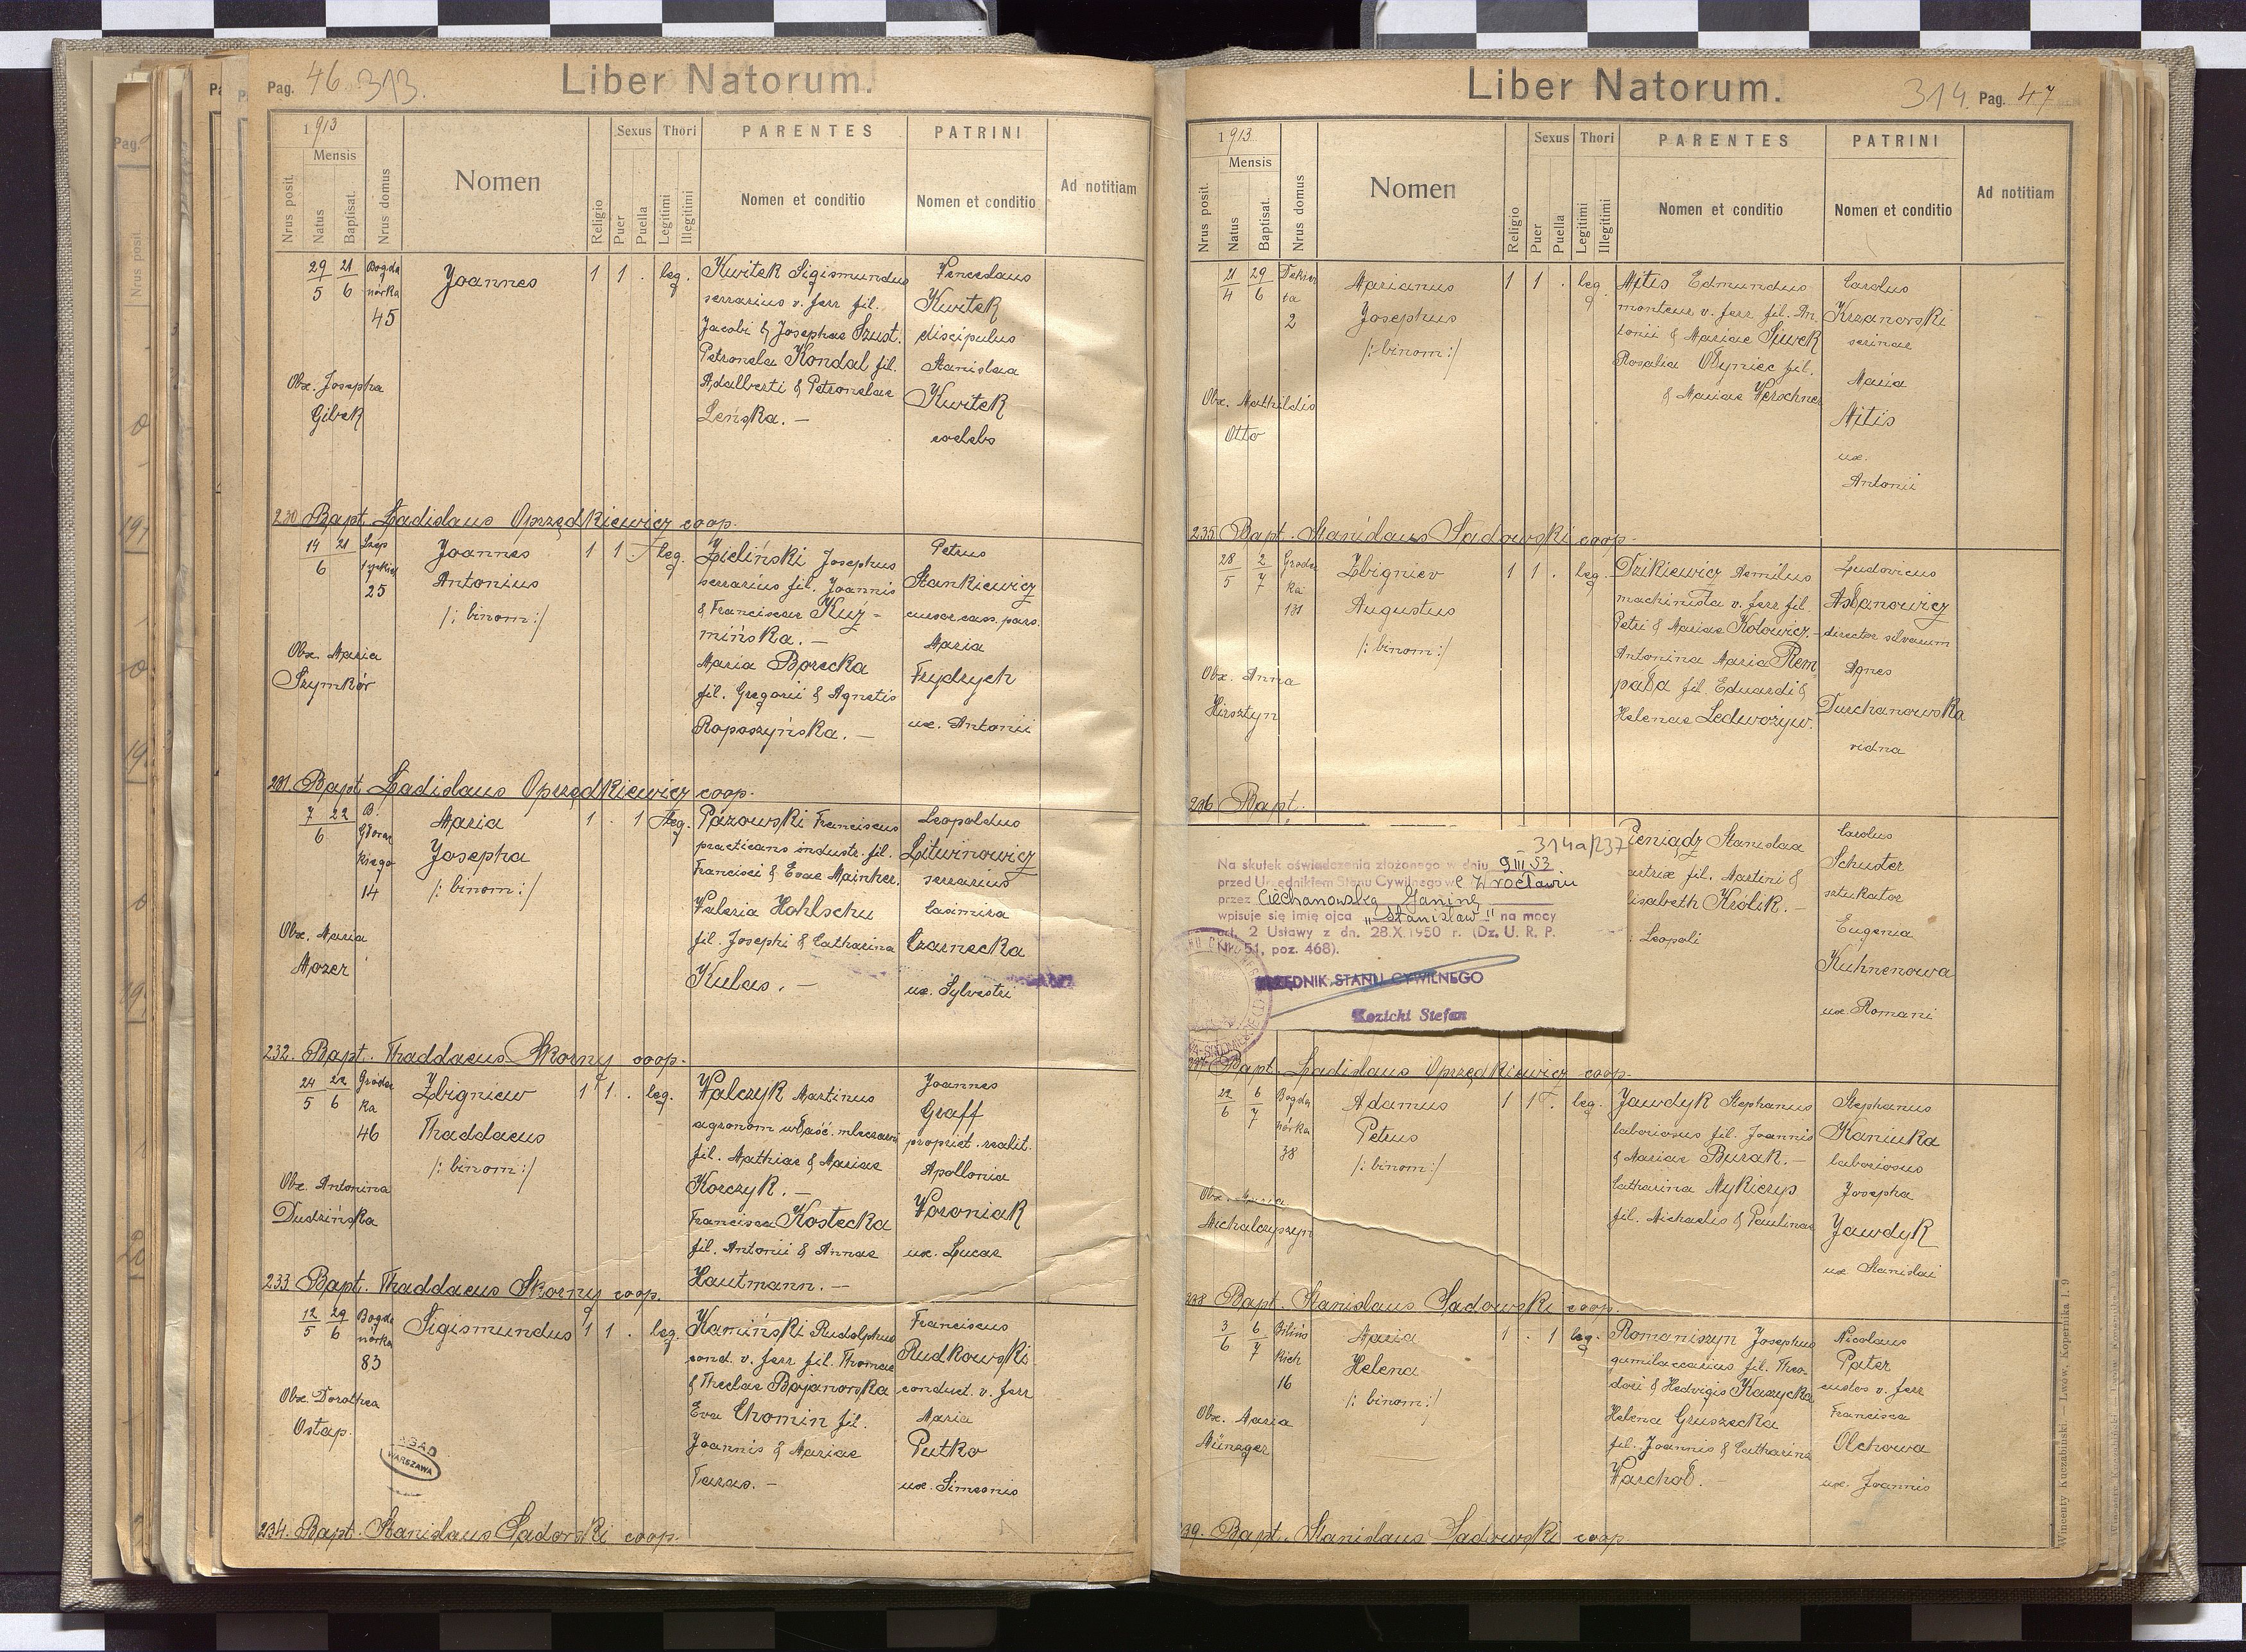 Pag. 46 313.
Liber Natorum.
1913
Mensis
Nrus posit.
Natus
Baptisat.
Nrus domus
Nomen
Religio
Sexus
Puer
Puella
Thori
Legitimi
Illegitimi
PARENTES
Nomen et conditio
PATRINI
Nomen et conditio
Ad notitiam
29 21 Bogda
5 6 nórka
45
Obx. Josepha
Gibek
Joannes
1 1 . leg.
Kwitek Sigismundus
serrarius v. ferr fil.
Jacobi & Josephae Szust.
Petronela Kondal fil.
Adalberti & Petronelae
Leńska. —
Venceslaus
Kwitek
discipulus
Stanislaa
Kwitek
coelebs
230 Bapt. Ladislaus Oprzędkiewicz coop.
14 21 Szep
6 tyckich
25
Obx. Maria
Szymkór
Joannes
Antonius
/: binom :/
1 1 . leg.
Zieliński Josephus
serrarius fil. Joannis
& Franciscae Kuź-
mińska. —
Maria Borecka
fil. Gregorii & Agnetis
Roposzyńska. —
Petrus
Stankiewicz
cursor cass. pars.
Maria
Frydrych
ux. Antonii
231. Bapt. Ladislaus Oprzędkiewicz coop.
7 22 B.
6 Głowac
kiego
14
Obx. Maria
Mozer
Maria
Josepha
/: binom :/
1 . 1 leg.
Pazowski Franciscus
practicans industr. fil.
Francisci & Evae Mainher.
Valeria Hohlschu
fil. Josephi & Catharina
Kulas. —
Leopoldus
Litwinowicz
serrarius
Casimira
Czarnecka
ux. Sylvestri
232. Bapt. Thaddaeus Skorny coop.
24 22 Gródec
5 6 ka
46
Obx. Antonina
Dudzińska
Zbigniew
Thaddaeus
/: binom :/
1 1 . leg.
Walczyk Martinus
agronom właść. mleczarni
fil. Mathiae & Mariae
Korczyk. —
Francisca Kostecka
fil. Antonii & Annae
Hautmann. —
Joannes
Graff
propriet. realit.
Apollonia
Woroniak
ux. Lucae
233. Bapt. Thaddaeus Skorny coop.
12 29 Bogda
5 6 nórka
83
Obx. Dorothea
Ostap.
Sigismundus
1 1 . leg.
Kamiński Rudolphus
cond. v. ferr fil. Thomae
& Theclae Bojanowska
Eva Chomin fil.
Joannis & Mariae
Taras. —
Franciscus
Rudkowski
conduct. v. ferr
Maria
Putko
ux. Simeonis
AGAD
WARSZAWA
234. Bapt. Stanislaus Sadowski coop.
Liber Natorum.
314. Pag. 47
1913
Mensis
Nrus posit.
Natus
Baptisat.
Nrus domus
Nomen
Religio
Sexus
Puer
Puella
Thori
Legitimi
Illegitimi
PARENTES
Nomen et conditio
PATRINI
Nomen et conditio
Ad notitiam
21 29
4 6
2
Obx. Mathildis
Otto
Marianus
Josephus
/: binom :/
1 1 . leg.
Mitis Edmundus
monteur v. ferr fil. An
tonii & Mariae Siwek
Rosalia Olyniec fil.
& Mariae Werschner
Carolus
Krzanowski
Maria
Mitis
ux.
Antonii
235. Bapt. Stanislaus Sadowski coop.
28 2 Grode
5 7 ka
131
Obx. Anna
Hirsztyn
Zbigniev
Augustus
/: binom :/
1 1 . leg.
Dzikiewicz Aemilus
machinista v. ferr fil.
Petri & Mariae Kolowicz. —
Antonina Maria Rem
pała fil. Eduardi &
Helenae Ledwożyw.
Ludovicus
Asłanowicz
director silvarum
Agnes
Turchanowska
vidna
236 Bapt.
314a/237
Na skutek oświadczenia złożonego w dniu 9 III 53
przed Urzędnikiem Stanu Cywilnego we Wrocławiu
przez Ciechanowską Janinę
wpisuje się imię ojca „Stanisław" na mocy
art. 2 Ustawy z dn. 28.X.1950 r. (Dz. U. R. P.
Nr. 51, poz. 468).
URZĘDNIK STANU CYWILNEGO
Kozicki Stefan
Pieniądz Stanislaa
fil. Martini &
Elisabeth Krolik. —
Leopoli
Carolus
Schuster
sztukator
Eugenia
Kuhnenowa
ux. Romani
237 Bapt. Ladislaus Oprzędkiewicz coop.
22 6 Bogda
6 7 nórka
38
Obx. Maria
Michalczyszyn
Adamus
Petrus
/: binom :/
1 1 . leg.
Jawdyk Stephanus
laboriosus fil. Joannis
& Mariae Burak. —
Catharina Mykiczyp
fil. Michaelis & Paulinae
Stephanus
Kaniuka
laboriosus
Josepha
Jawdyk
ux Stanislai
238 Bapt. Stanislaus Sadowski coop.
3 6 Bilińs
6 7 kich
16
Obx. Maria
Münzger
Maria
Helena
/: binom :/
1 . 1 leg.
Romaniszyn Josephus
gumilaccarius fil. Theo-
dori & Hedvigis Kaszycka
Helena Gruszecka
fil. Joannis & Catharina
Warchoł. —
Nicolaus
Pater
custos v. ferr
Francisca
Olchowa
ux. Joannis
239. Bapt. Stanislaus Sadowski coop.
Wincenty Kuczabiński — Lwów, Kopernika l. 9